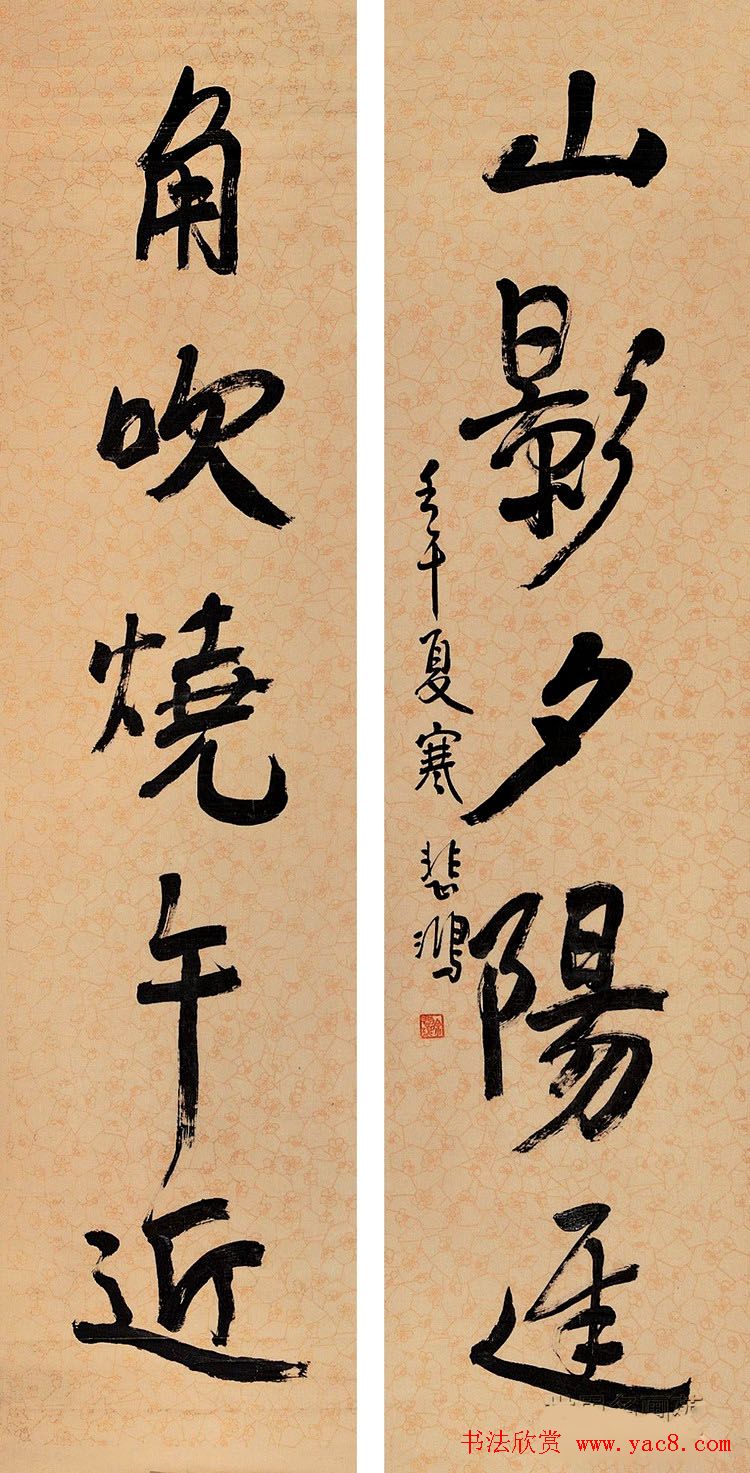 山影夕陽遲
壬午夏寒 悲鴻
角吹燒午近
书法欣赏 www.yac8.com